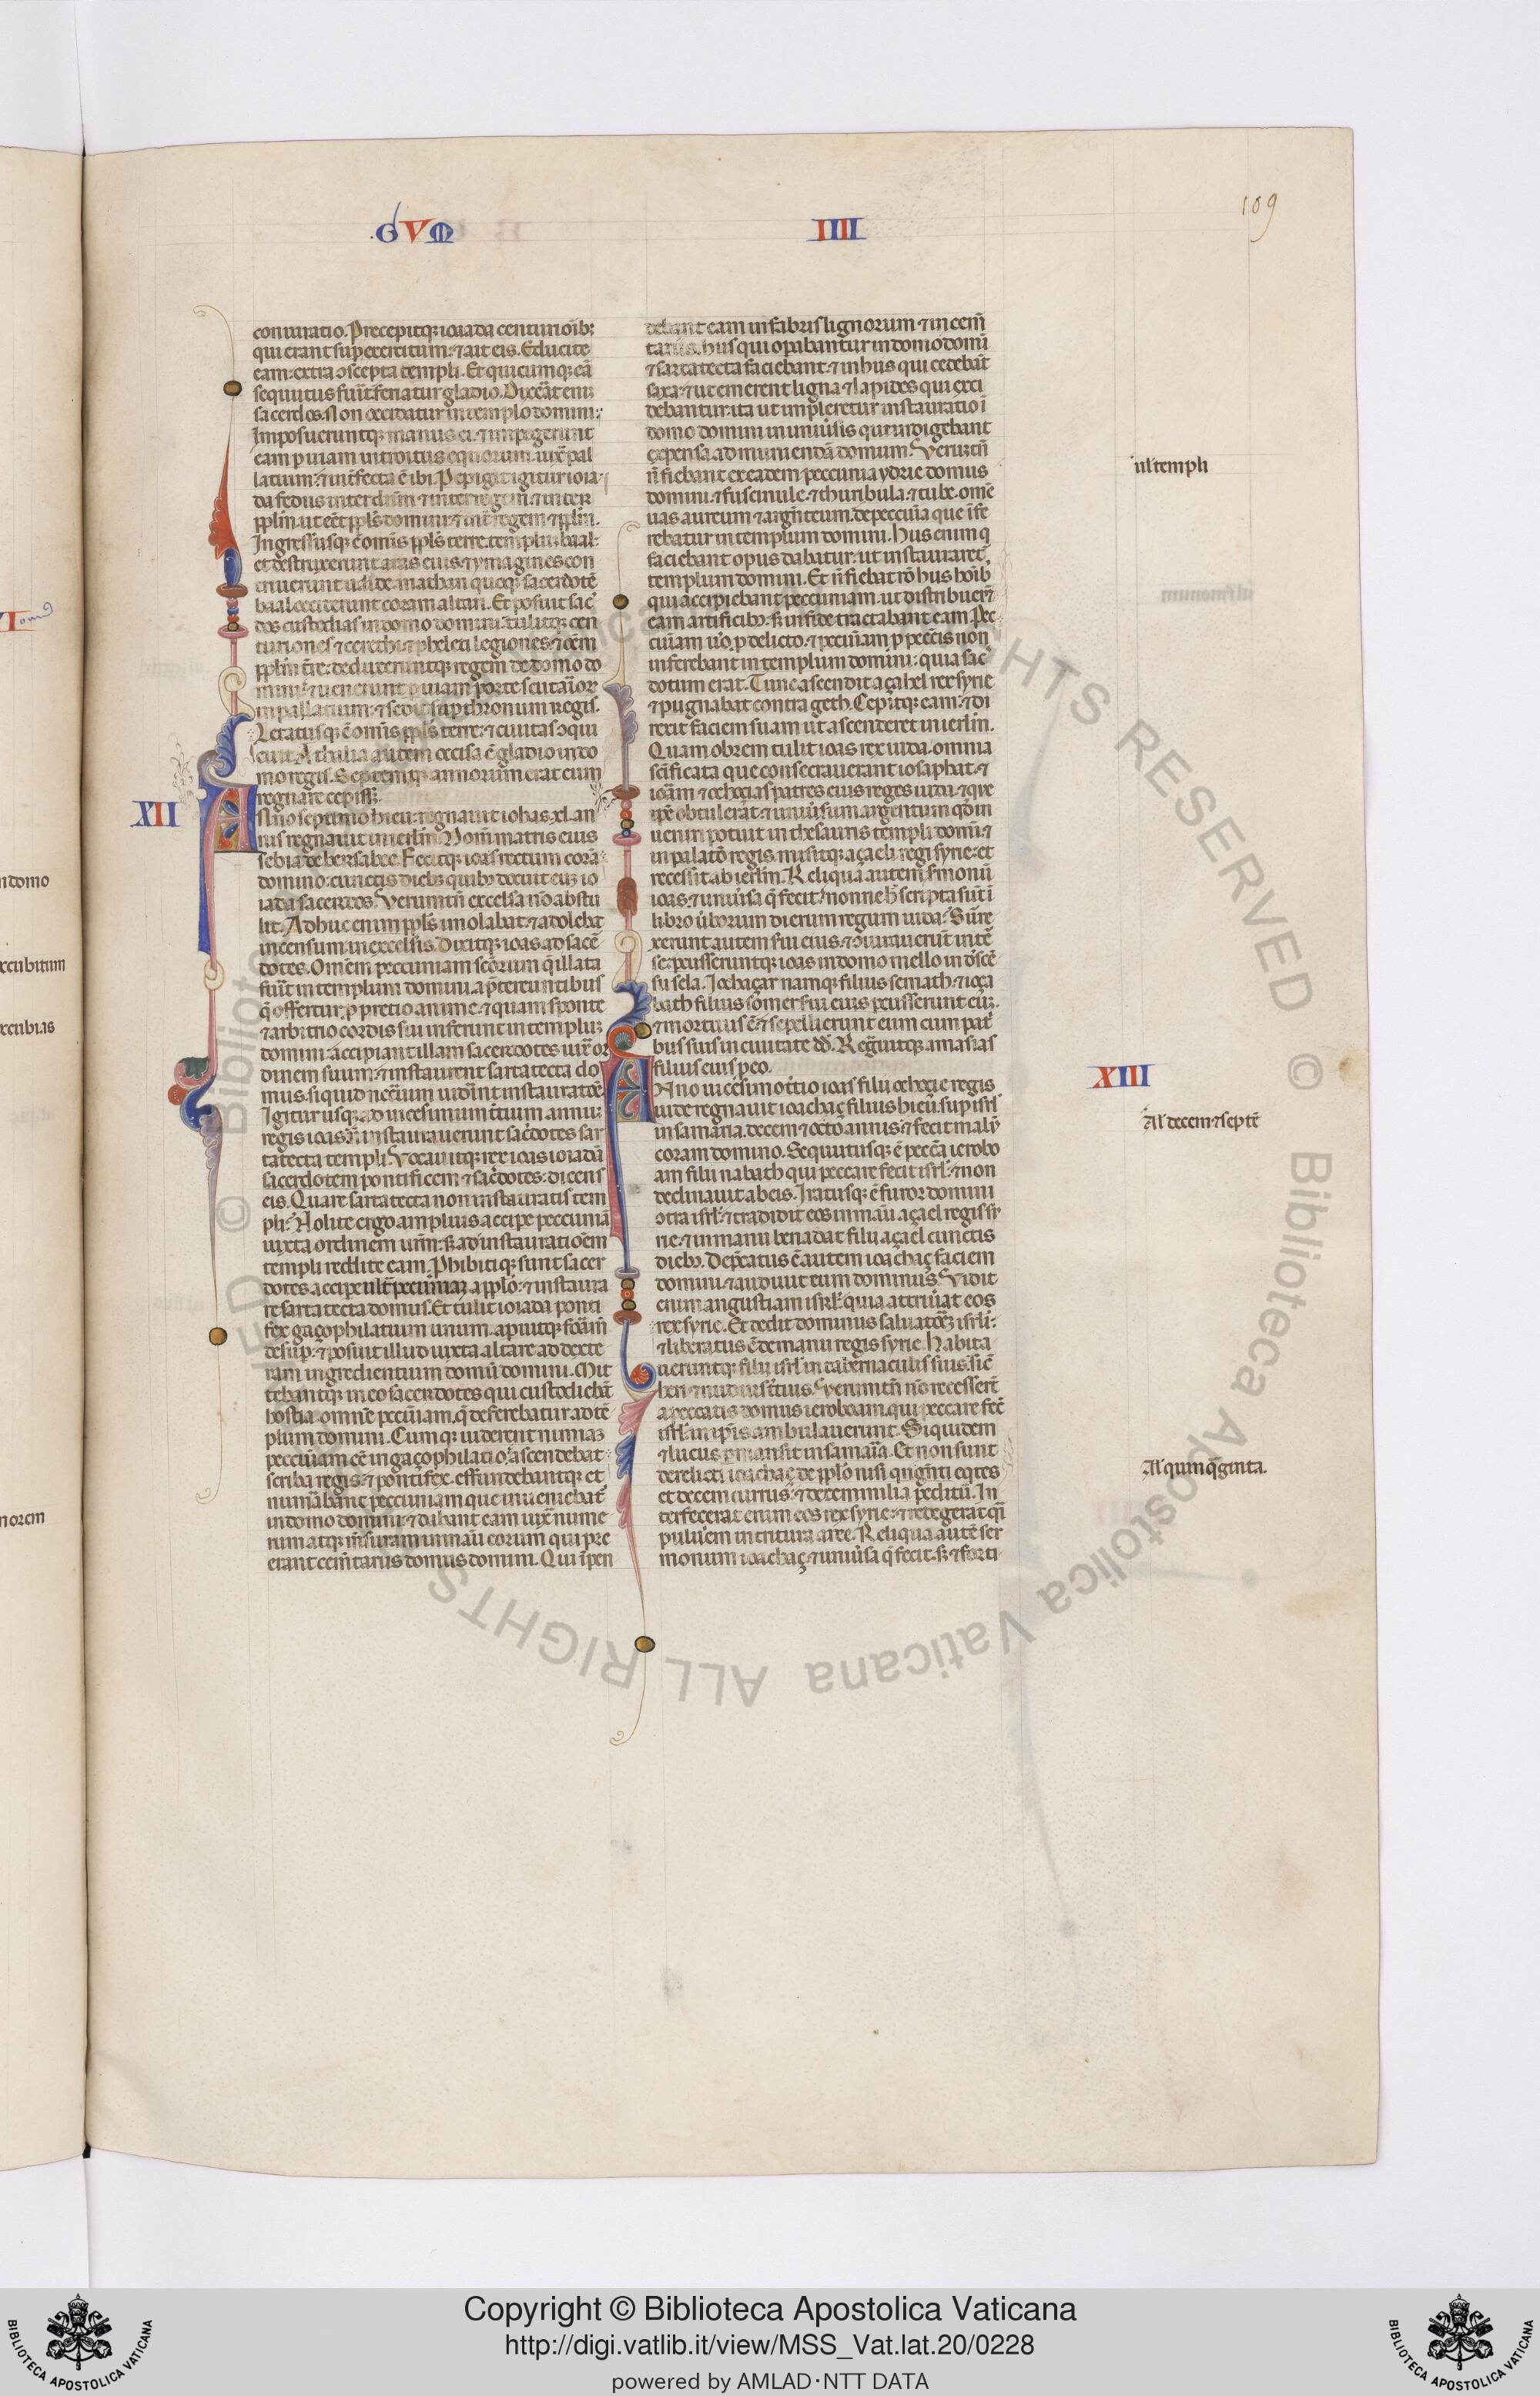 GVM
IIII
109
coniuratio. Precepitqȝ ioiada centurioībȝ
qui erant sup exercitum: ⁊ ait eis. Educite
eam extra ↄscepta templi. Et quicumqȝ eā
sequutus fuīt feriatur gladio. Dixāt eniȝ
sacerdos. Non occidatur in templo domini.
Imposueruntqȝ manus ei. ⁊ impegerunt
eam p uiam introitus equorum. iuxͣ pal
latium: ⁊ int̄fecta ē ibi. Pepigit igitur ioia
da fedus inter dn̄m ⁊ inter regem. ⁊ inter
ppl̄m. ut eēt ppl̄s domini: ⁊ int̄ regem ⁊ ppl̄m.
Ingressusqȝ ē omīs ppl̄s terre. templuȝ baal:
et destruxerunt aras eius. ⁊ ymagines con
triuerunt ualide. mathan quoqȝ sacerdotē
baal occiderunt coram altari. Et posuit sac̄
dos custodias in domo domini. tulitqȝ cen
turiones ⁊ cerethi ⁊ pheleti legiones. ⁊ oēm
ppl̄m t̄re: deduxeruntqȝ regem de domo do
mini: ⁊ uenerunt p uiam porte scutarior
in pallatium: ⁊ sedit sup thronum regis.
Letatusqȝ ē omīs ppl̄s terre: ⁊ ciuitas ↄqui
euit. Athalia autem occisa ē gladio in do
mo regis. Septemqȝ annorum erat cum
regnare cepisset.
XII
Anno septimo hieu. regnauit iohas. xl. an
nis regnauit in ierl̄m. Nom̄ matris eius
sebia de bersabee. Fecitqȝ ioas rectum corā
domino: cunctis diebȝ quibȝ docuit euȝ io
iada sacerdos. Verumtn̄ excelsa nō abstu
lit. Adhuc enim ppl̄s īmolabat. ⁊ adolebat
incensum in excelsis. Dixitqȝ ioas ad sacē
dotes. Omēm peccuniam scōrum q̄ illata
fūit in templum domini. a p̄tereuntibus
q̄ offertur. p pretio anime: ⁊ quam sponte
⁊ arbitrio cordis sui inferunt in templuȝ
domini. accipiant illam sacerdotes iuxͣ or
dinem suum: ⁊ instaurent sartatecta do
mus. siquid nēcium uidīnt instauratōe.
Igitur usqȝ ad uicesimum t̄tium annuȝ
regis ioas. n̄ instaurauerunt sac̄dotes sar
tatecta templi. Vocauitqȝ rex ioas ioiadā
sacerdotem pontificem ⁊ sac̄dotes: dicens
eis. Quare sartatecta non instauratis tem
pli: Nolite ergo amplius accipe peccuniā
iuxta ordinem urm̄: s; ad instauratiōem
templi reddite eam. Phibitiqȝ sunt sacer
dotes accipe ult̄ pecuniaȝ a ppl̄o: ⁊ instaura
re sartatecta domus. Et tulit ioiada ponti
fex gaçophilatium unum. apuitqȝ forām̄
desup: ⁊ posuit illud iuxta altare ad dexte
ram ingredientium domū domini. Mit
tebantqȝ in eo sacerdotes qui custodiebāt
hostia: omnē pecūiam. q̄ deferebatur ad tē
plum domini. Cumqȝ uiderent nimiaȝ
peccūiam eē in gaçophilatio: ascendebat
scriba regis. ⁊ pontifex. effundebantqȝ et
numābant peccuniam que inueniebat̄
in domo domini: ⁊ dabant eam iuxͣ nume
rum atqȝ mēsuram in manū eorum qui pre
erant cem̄tariis domus domini. Qui īpen
debant eam in fabris lignorum ⁊ in cem̄
tariis. hiis qui opabantur in domo domī
⁊ sartatecta faciebant: ⁊ in hiis qui cedebāt
saxa: ⁊ ut emerent ligna ⁊ lapides qui exci
debantur. ita ut impleretur instauratio ī
domo domini in uniūsis qui indigebant
expensa ad muniendā domum. Verūtn̄
n̄ fiebant ex eadem peccunia ydrie domus
domini. ⁊ fuscinule. ⁊ thuribula. ⁊ tube. omē
uas aureum ⁊ argn̄teum. de peccuīa que īfe
rebatur in templum domini. Hiis enim q
faciebant opus dabatur: ut instauraret̄
templum domini. Et n̄ fiebat rō hiis hoīb
qui accipiebant peccuniam. ut distribuer̄
eam artificibȝ. s; in fide tractabant eam. Pec
cūiam ūo. p delicto. ⁊ pecuīam p pecc̄is non
inferebant in templum domini: quia sac̄
dotum erat. Tunc ascendit açahel rex syrie
⁊ pugnabat contra geth. Cepitqȝ eam: ⁊ di
rexit faciem suam ut ascenderet in ierl̄m.
Quam obrem tulit ioas rex iuda. omnia
scīficata que consecrauerant iosaphat. ⁊
iorām ⁊ ochoçias patres eius reges iuda: ⁊ que
ipē obtulerāt. ⁊ uniūsum argentum qd̄ in
ueniri potuit in thesauris templi domī. ⁊
in palatō regis. misitqȝ açaeli regi syrie: et
recessit ab ierl̄m. Reliqua autem sm̄onū
ioas. ⁊ uniūsa q̄ fecit. nonne h̄ scripta sūt ī
libro ūborum dierum regum iuda. Sūre
xerunt autem serui eius. ⁊ ↄiurauerūt int̄ē
se: pcusseruntqȝ ioas in domo mello in dscē
su sela. Iochaçar namqȝ filius semath. ⁊ ioça
bath filius somer serui eius pcusserunt eūȝ.
⁊ mortuus ē. ⁊ sepelierunt eum cum pat̄
bus suis in ciuitate dd̄. Regn̄uitqȝ amasias
filius eius p eo.
XIII
Anno uicesimo t̄tio ioas filii ochoçie regis
iude regnauit ioachaç filius hieū. sup isrl̄
in samaria. decem ⁊ octo annis. ⁊ fecit malū
coram domino. Sequutusqȝ ē pecc̄a ierobo
am filii nabath qui peccare fecit isrl̄: ⁊ non
declinauit ab eis. Iratusqȝ ē furor domini
ↄtra isrl̄: ⁊ tradidit eos in manū açael regis sy
rie. ⁊ in manu benadat filii açael cunctis
diebȝ. Dep̄catus ē autem ioachaç faciem
domini. ⁊ audiuit eum dominus. Vidit
enim angustiam isrl̄. quia attriuāt eos
rex syrie. Et dedit dominus saluatōȝ isrl̄i:
⁊ liberatus ē de manu regis syrie. Habita
ueruntqȝ filii isrl̄ in tabernaculis suis. sic̄
heri ⁊ nudiust̄tius. Verumtn̄ nō recesser̄t
a peccatis domus ieroboam. qui peccare fec̄
isrl̄: in ip̄is ambulauerunt. Siquidem
⁊ lucus pmansit in samaīa. Et non sunt
derelicti ioachaç de ppl̄o nisi qn̄gn̄ti eqites
et decem currus. ⁊ decem milia peditū. In
terfecerat enim eos rex syrie: ⁊ redegerat q̄i
puluēm in tritura aree. Reliqua autē ser
monum ioachaç. ⁊ uniūsa q̄ fecit. s; ⁊ forti
ul̄ templi
Al̄ decem ⁊ septē
Al̄ quinq̄ginta.
ndomo
xcubitum
xcubias
norem
Copyright © Biblioteca Apostolica Vaticana
http://digi.vatlib.it/view/MSS_Vat.lat.20/0228
powered by AMLAD·NTT DATA
BIBLIOTECA APOSTOLICA VATICANA
BIBLIOTECA APOSTOLICA VATICANA